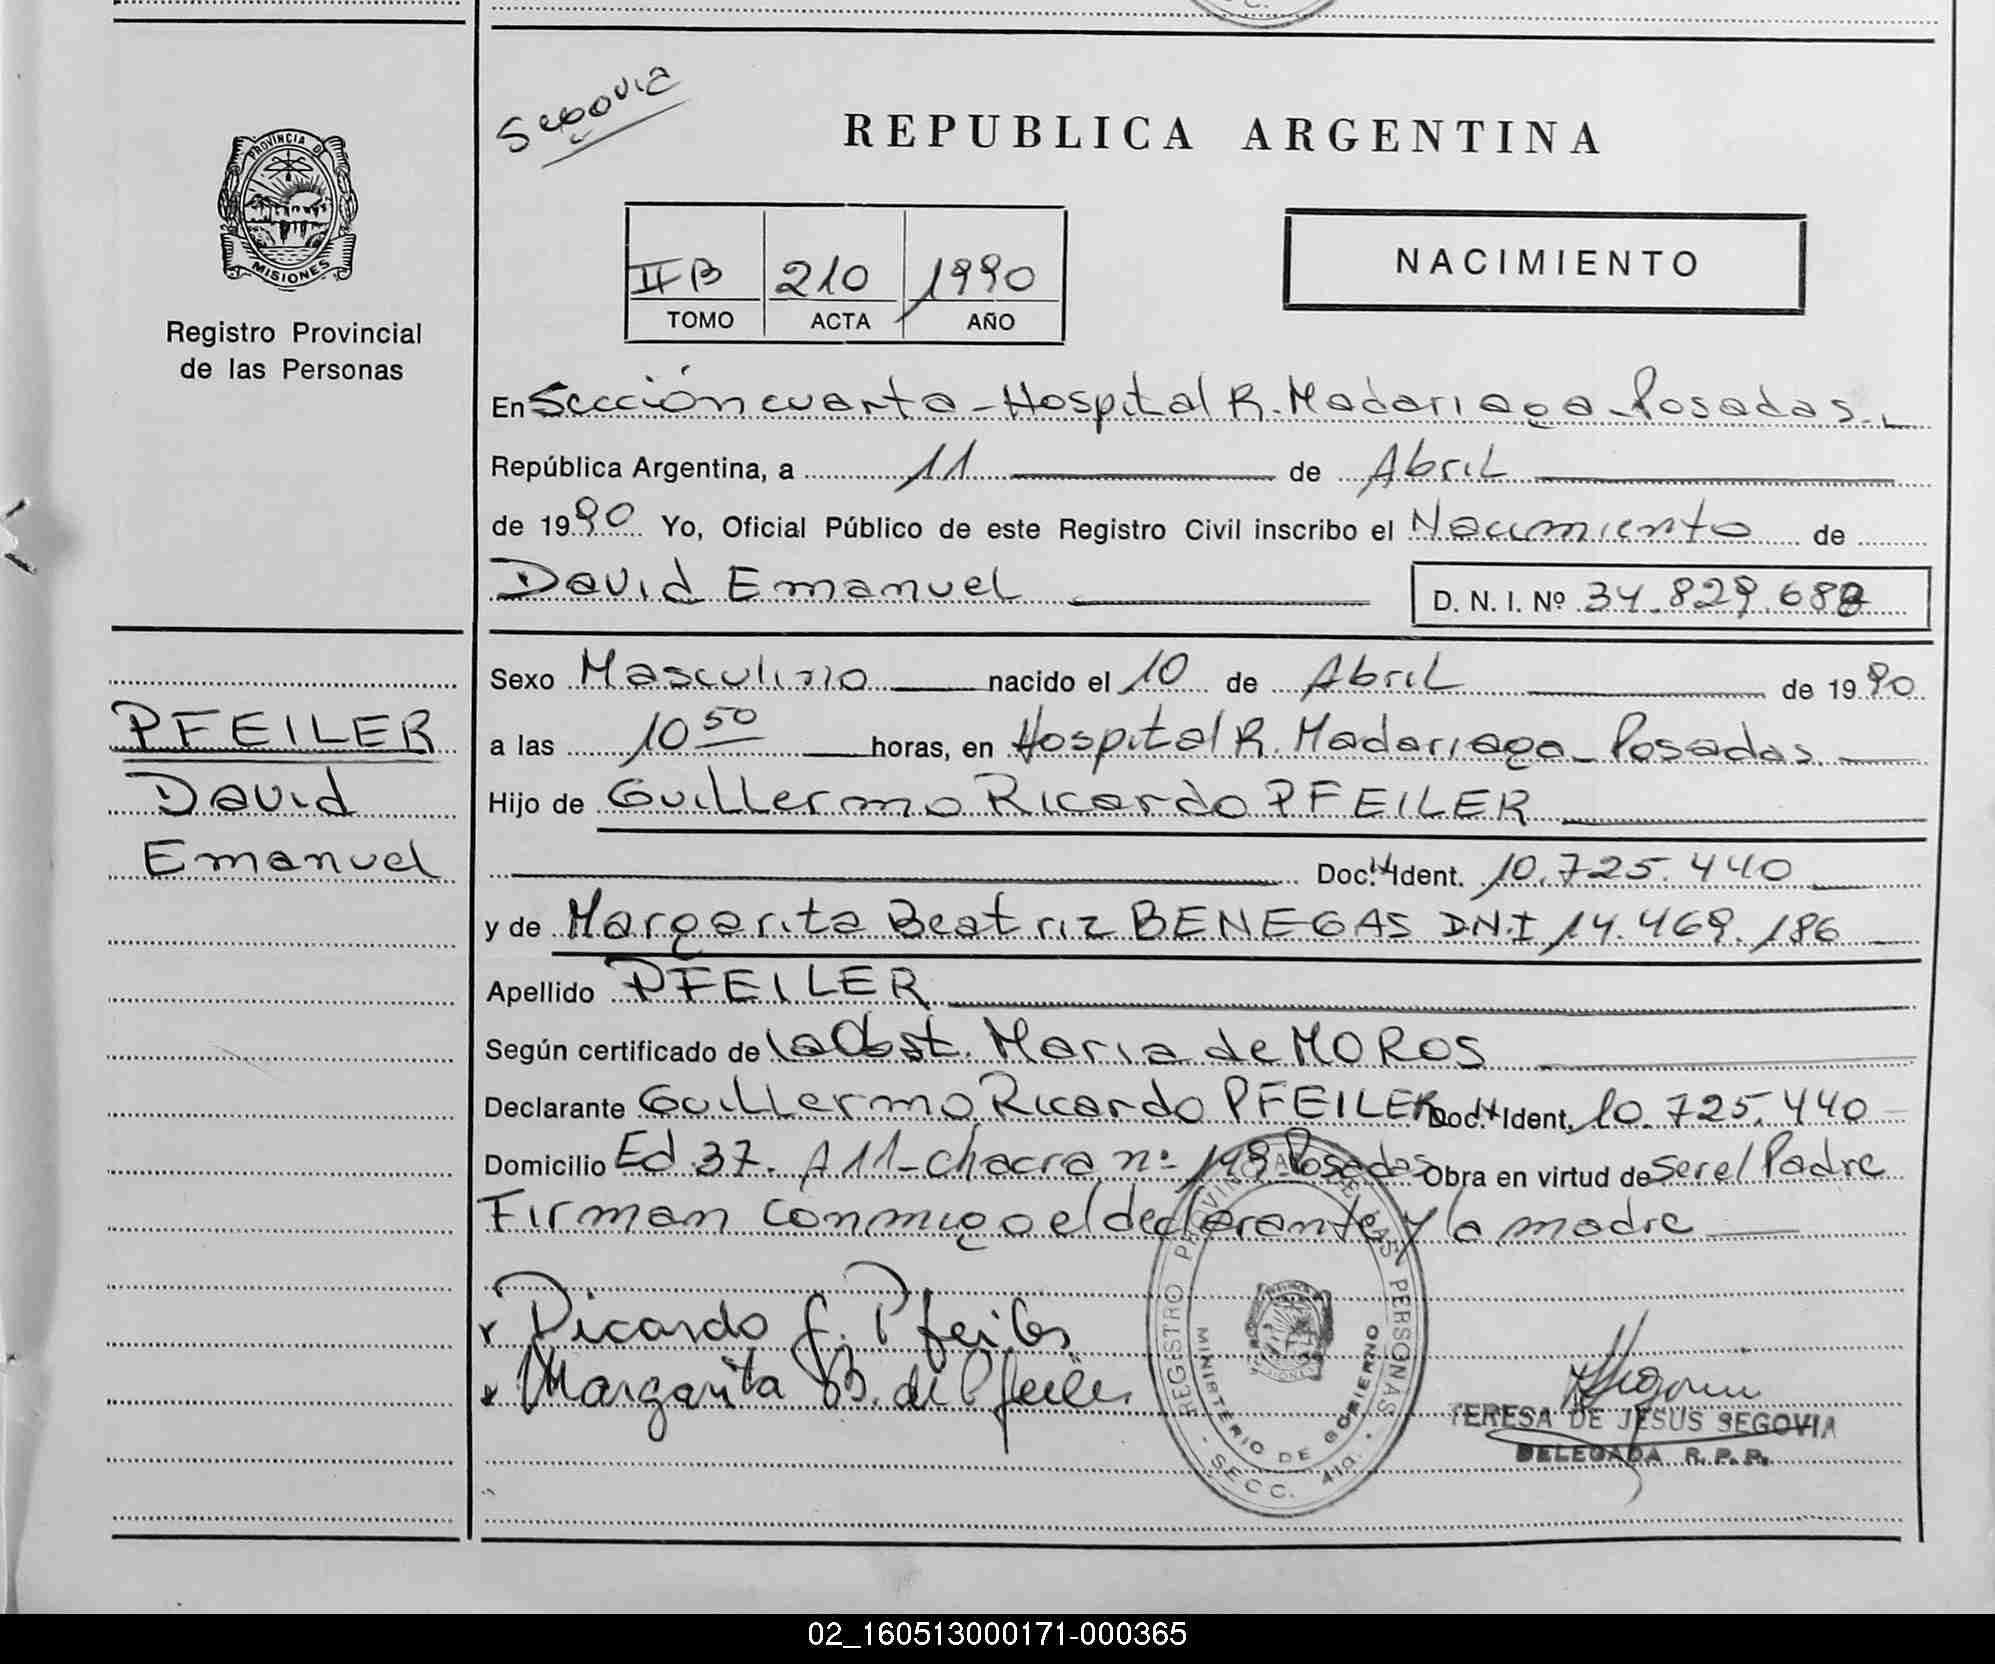 Segovia
REPUBLICA ARGENTINA
PROVINCIA D
MISIONES
Registro Provincial
de las Personas
II B 210 1990
TOMO ACTA AÑO
NACIMIENTO
En Sección cuarta - Hospital R. Madariaga - Posadas.
República Argentina, a 11 de Abril
de 1990 Yo, Oficial Público de este Registro Civil inscribo el Nacimiento de
David Emanuel D. N. I. Nº 34.829.68
Sexo Masculino nacido el 10 de Abril de 1990
a las 10 50 horas, en Hospital R. Madariaga - Posadas.
Hijo de Guillermo Ricardo PFEILER
Doc. Ident. 10.725.440
y de Margarita Beatriz BENEGAS D.N.I 14.469.186
Apellido PFEILER
Según certificado de la Obst. Maria de MOROS
Declarante Guillermo Ricardo PFEILER Doc. Ident. 10.725.440
Domicilio Ed 37. A 11 - chacra nº 149 Posadas Obra en virtud de ser el Padre
Firman conmigo el declarante y la madre
PFEILER
David
Emanuel
Ricardo G. Pfeiler
Margarita B. de Pfeiler
REGISTRO PROVINCIAL DE LAS PERSONAS
MINISTERIO DE GOBIERNO
- SECC. 4ta. -
TERESA DE JESUS SEGOVIA
DELEGADA R. P. P.
02_160513000171-000365